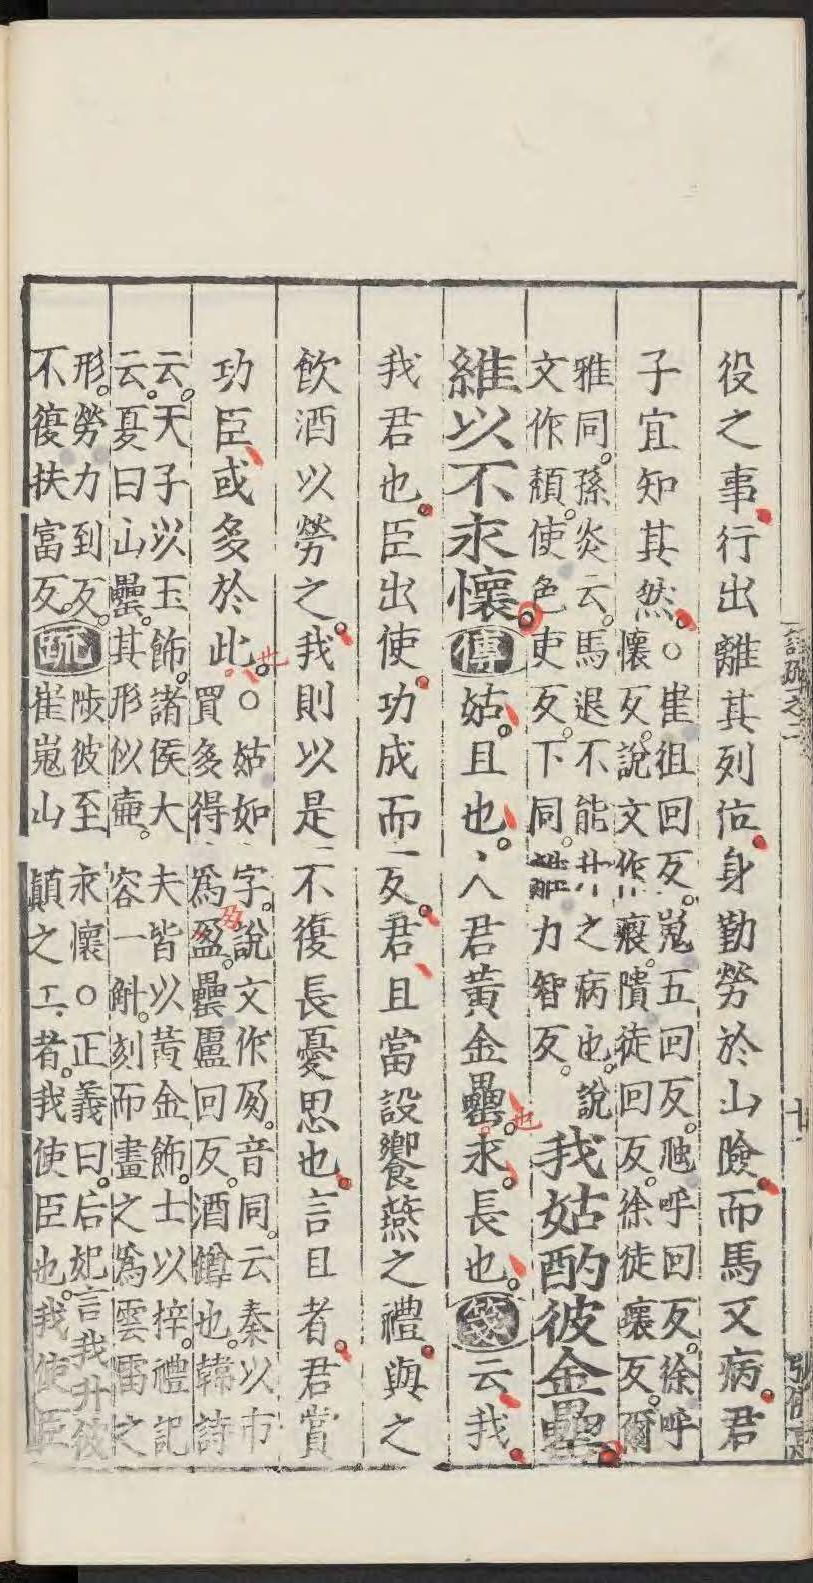 役之事行出離其列位身勤勞於山險而馬又病君
子宜知其然○崔徂回反嵬五回反虺呼回反徐呼
懷反說文作瘣隤徒回反徐徒瓌反爾
雅同孫炎云馬退不能升之病也說
文作頹使色吏反下同離力智反
我姑酌彼金罍
維以不永懷傳姑且也人君黃金罍永長也箋云我
我君也臣出使功成而反君且當設饗燕之禮與之
飲酒以勞之我則以是不復長憂思也言且者君賞
功臣或多於此○姑如字說文作夃音同云秦以市
買多得為盈罍盧回反酒罇也韓詩
云天子以玉飾諸侯大夫皆以黃金飾士以梓禮記
云夏曰山罍其形似壷容一斛刻而畫之為雲雷之
形勞力到反
不復扶富反疏陟彼至永懷○正義曰后妃言我升彼
崔嵬山巔之上者我使臣也我使臣